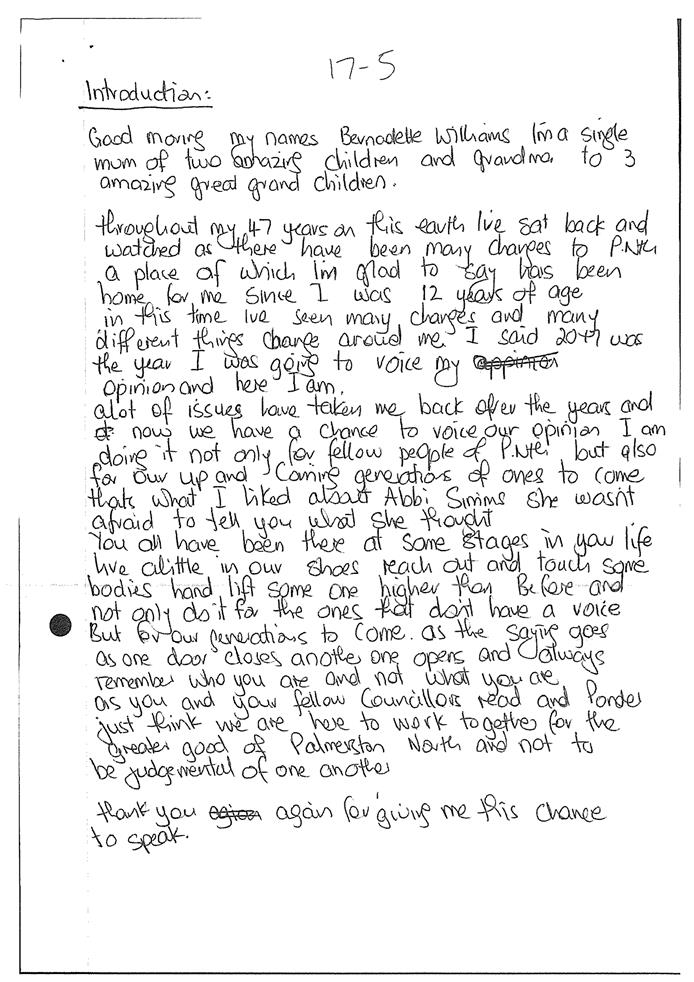 17-5
Introduction:
Good moring my names Bernadette Williams Im a single
mum of two amazing children and grandma to 3
amazing great grand children.
throughout my 47 years on this earth Ive sat back and
watched as there have been many changes to P.Nth
a place of which Im glad to say has been
home for me since I was 12 years of age
in this time Ive seen many changes and many
different things change around me. I said was
the year I was going to voice my
opinion and here I am.
alot of issues have taken me back over the years and
now we have a chance to voice our opinion I am
doing it not only for fellow people of P.Nth but also
for our up and Coming generations of ones to come
thats what I liked about Abbi Simms she wasnt
afraid to tell you what she thought
You all have been there at some stages in your life
live alittle in our shoes reach out and touch some
bodies hand lift some one higher than Before and
not only do it for the ones that dont have a voice
But for our generations to come. as the saying goes
as one door closes another one opens and always
remember who you are and not what you are
as you and your fellow Councillors read and Ponder
just think we are here to work together for the
greater good of Palmerston North and not to
be judgemental of one another
thank you again for giving me this chance
to speak.